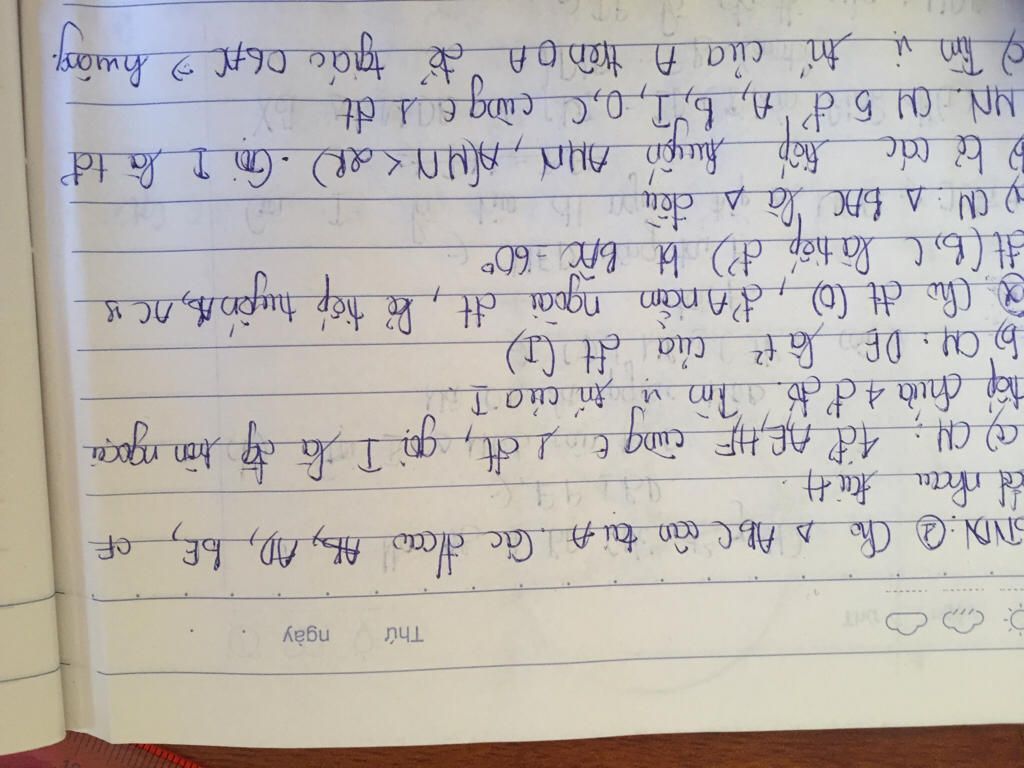 Thứ ngày
BNVN: ① Cho Δ ABC cân tại A. Các đcao AB, AD, BE, CF
cắt nhau tại H.
a) CM: 4đ A,E,H,F cùng ∈ 1 đt, gọi I là đg tròn ngoại
tiếp chứa 4 đ đó. Tìm vị trí của I.
b) CM: DE là t² của đt (I)
② Cho đt (O), đ A nằm ngoài đt, kẻ tiếp tuyến AB, AC vs
đt (B, C là tiếp đ) bt BAC = 60°
a) CM Δ BAC là Δ đều
b) kẻ các tiếp tuyến AMN, A(MN < 2R). Gọi I là tđ
MN. CM 5 đ A, B, I, O, C cùng ∈ 1 đt
c) Tìm vị trí của A trên OA để tgiác OBAC → hvuông